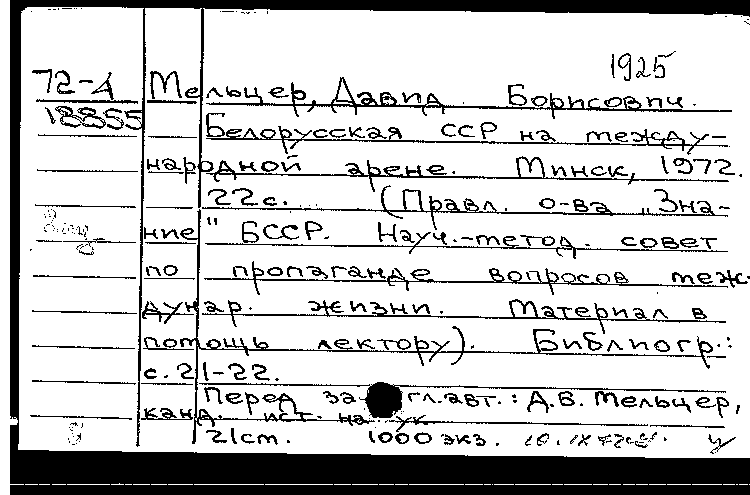 1925
72-4 Мельцер, Давид Борисович.
18855 Белорусская ССР на между-
народной арене. Минск, 1972.
22с. (Правл. о-ва „Зна-
ние" БССР. Науч.-метод. совет
по пропаганде вопросов меж-
дунар. жизни. Материал в
помощь лектору). Библиогр.:
с. 21-22.
Перед загл. авт.: Д.Б. Мельцер,
канд. ист. наук.
21см. 1000 экз.